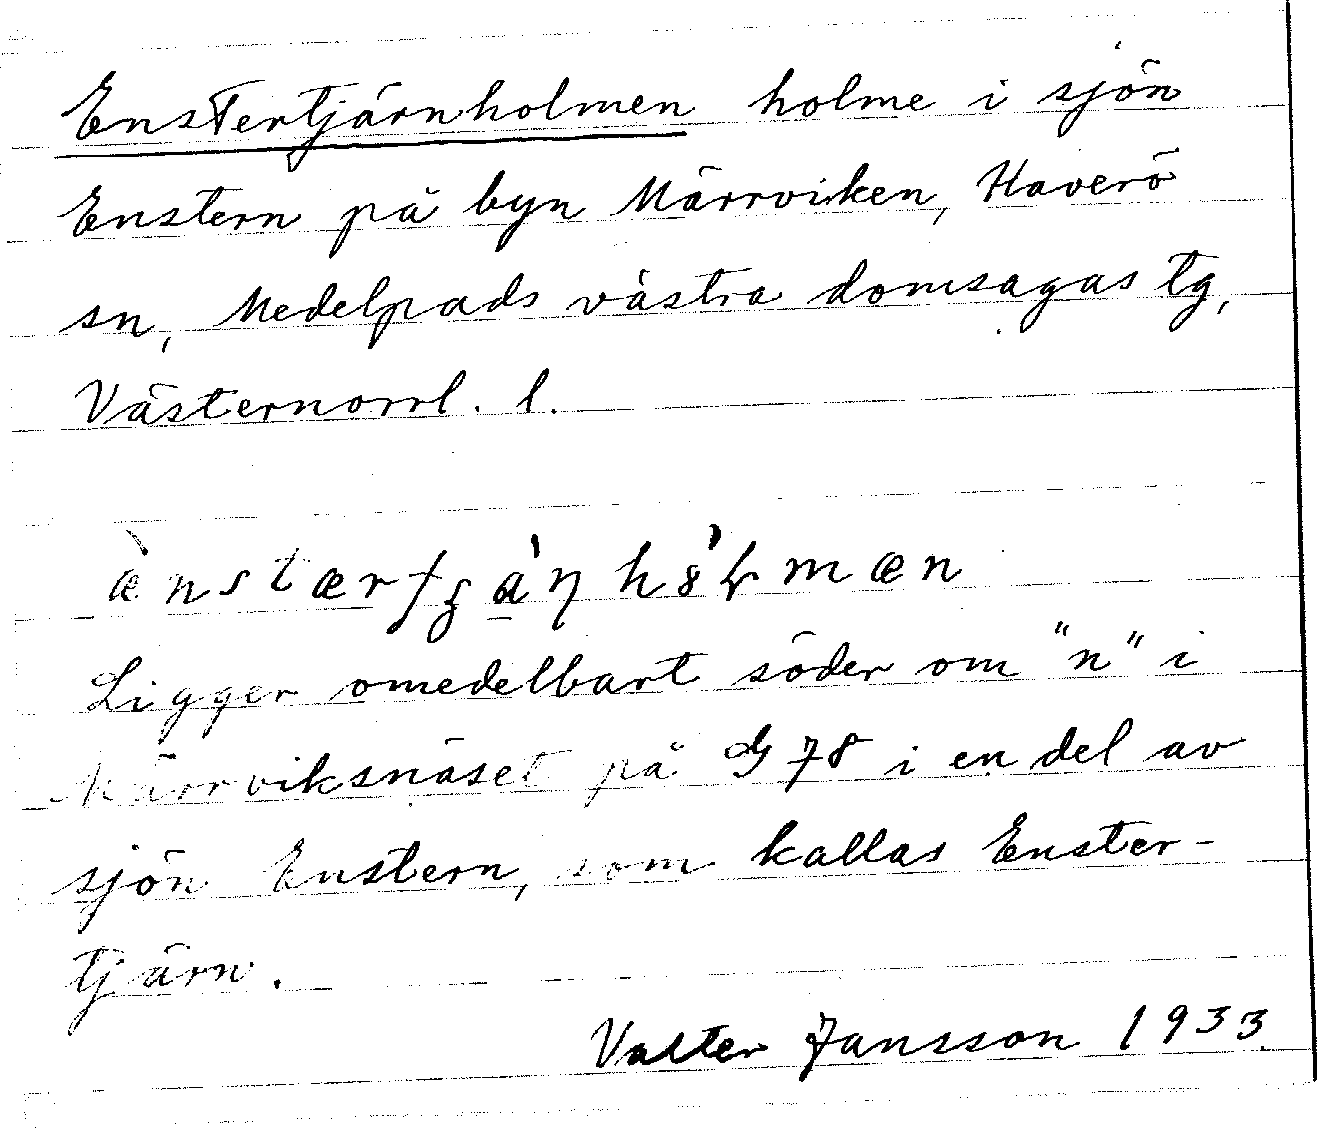 Enstertjärnholmen holme i sjön
Enstern på byn Märrviken, Haverö
sn, Medelpads västra domsagas tg,
Västernorrl. l.
Ligger omedelbart söder om "n" i
Märrviksnäset på G 78 i en del av
sjön Enstern, som kallas Enster-
tjärn.
Valter Jansson 1933